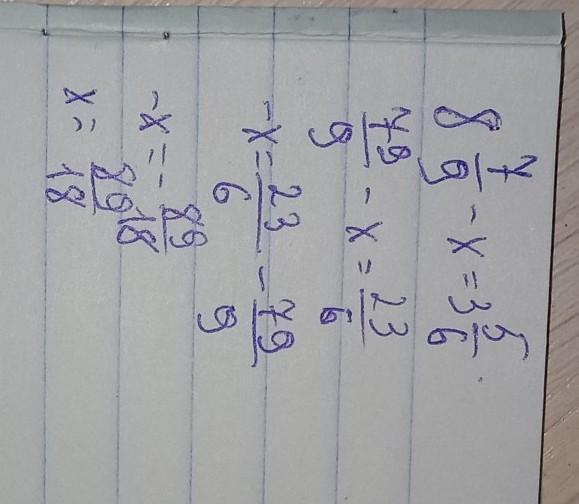 8 7/9 - x = 3 5/6
79/9 - x = 23/6
-x = 23/6 - 79/9
-x = - 89/18
x = 89/18